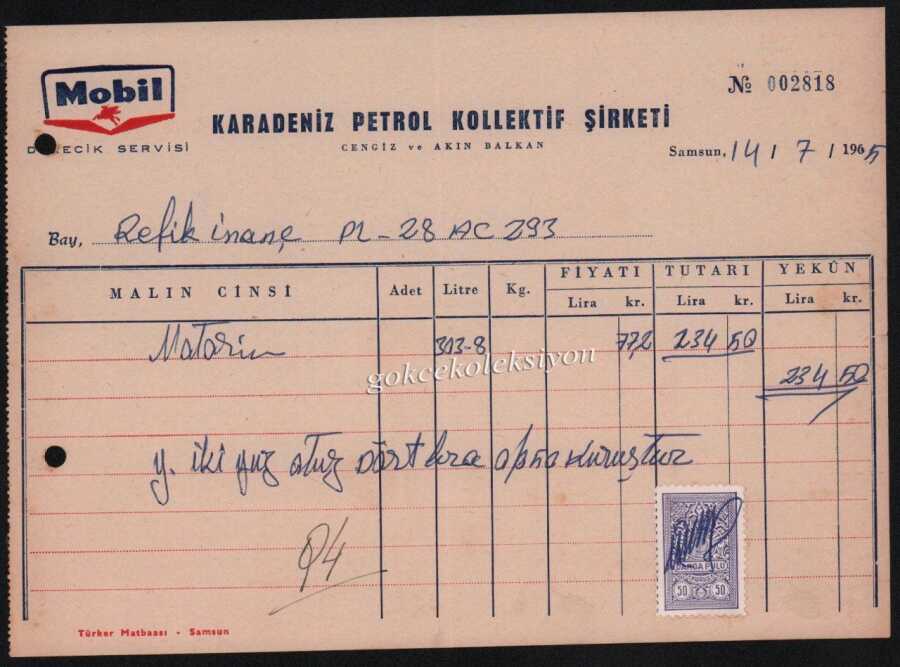 Mobil
№ 002818
KARADENİZ PETROL KOLLEKTİF ŞİRKETİ
CENGİZ ve AKIN BALKAN
SERVİSİ
Samsun, 14 / 7 / 1965
Bay, Refik inanç PL - 28 AC 293
MALIN CİNSİ Adet Litre Kg. FİYATI TUTARI YEKÛN
Lira kr. Lira kr. Lira kr.
Motorin 303-8 77,2 234 50
234 50
gokcekoleksiyon
y. iki yüz otuz dört lira kuruştur
DAMGA PULU
50 50
Türker Matbaası - Samsun